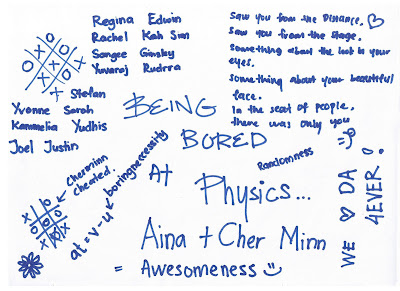 Regina Edwin
Rachel Kah Sin
Sangee Ginsky
Yuvaraj Rudrra
Stefan
Yvonne Sarah
Kammelia Yudhis
Joel Justin
saw you from the distance.
saw you from the stage.
something about the look in your
eyes.
something about your beautiful
face.
In the seat of people,
there was only you
BEING
BORED
At
Physics...
Randomness
boringnecessity
Cherminn
cheated.
at = v - u
Aina + Cher Minn
= Awesomeness
WE DA
4EVER.